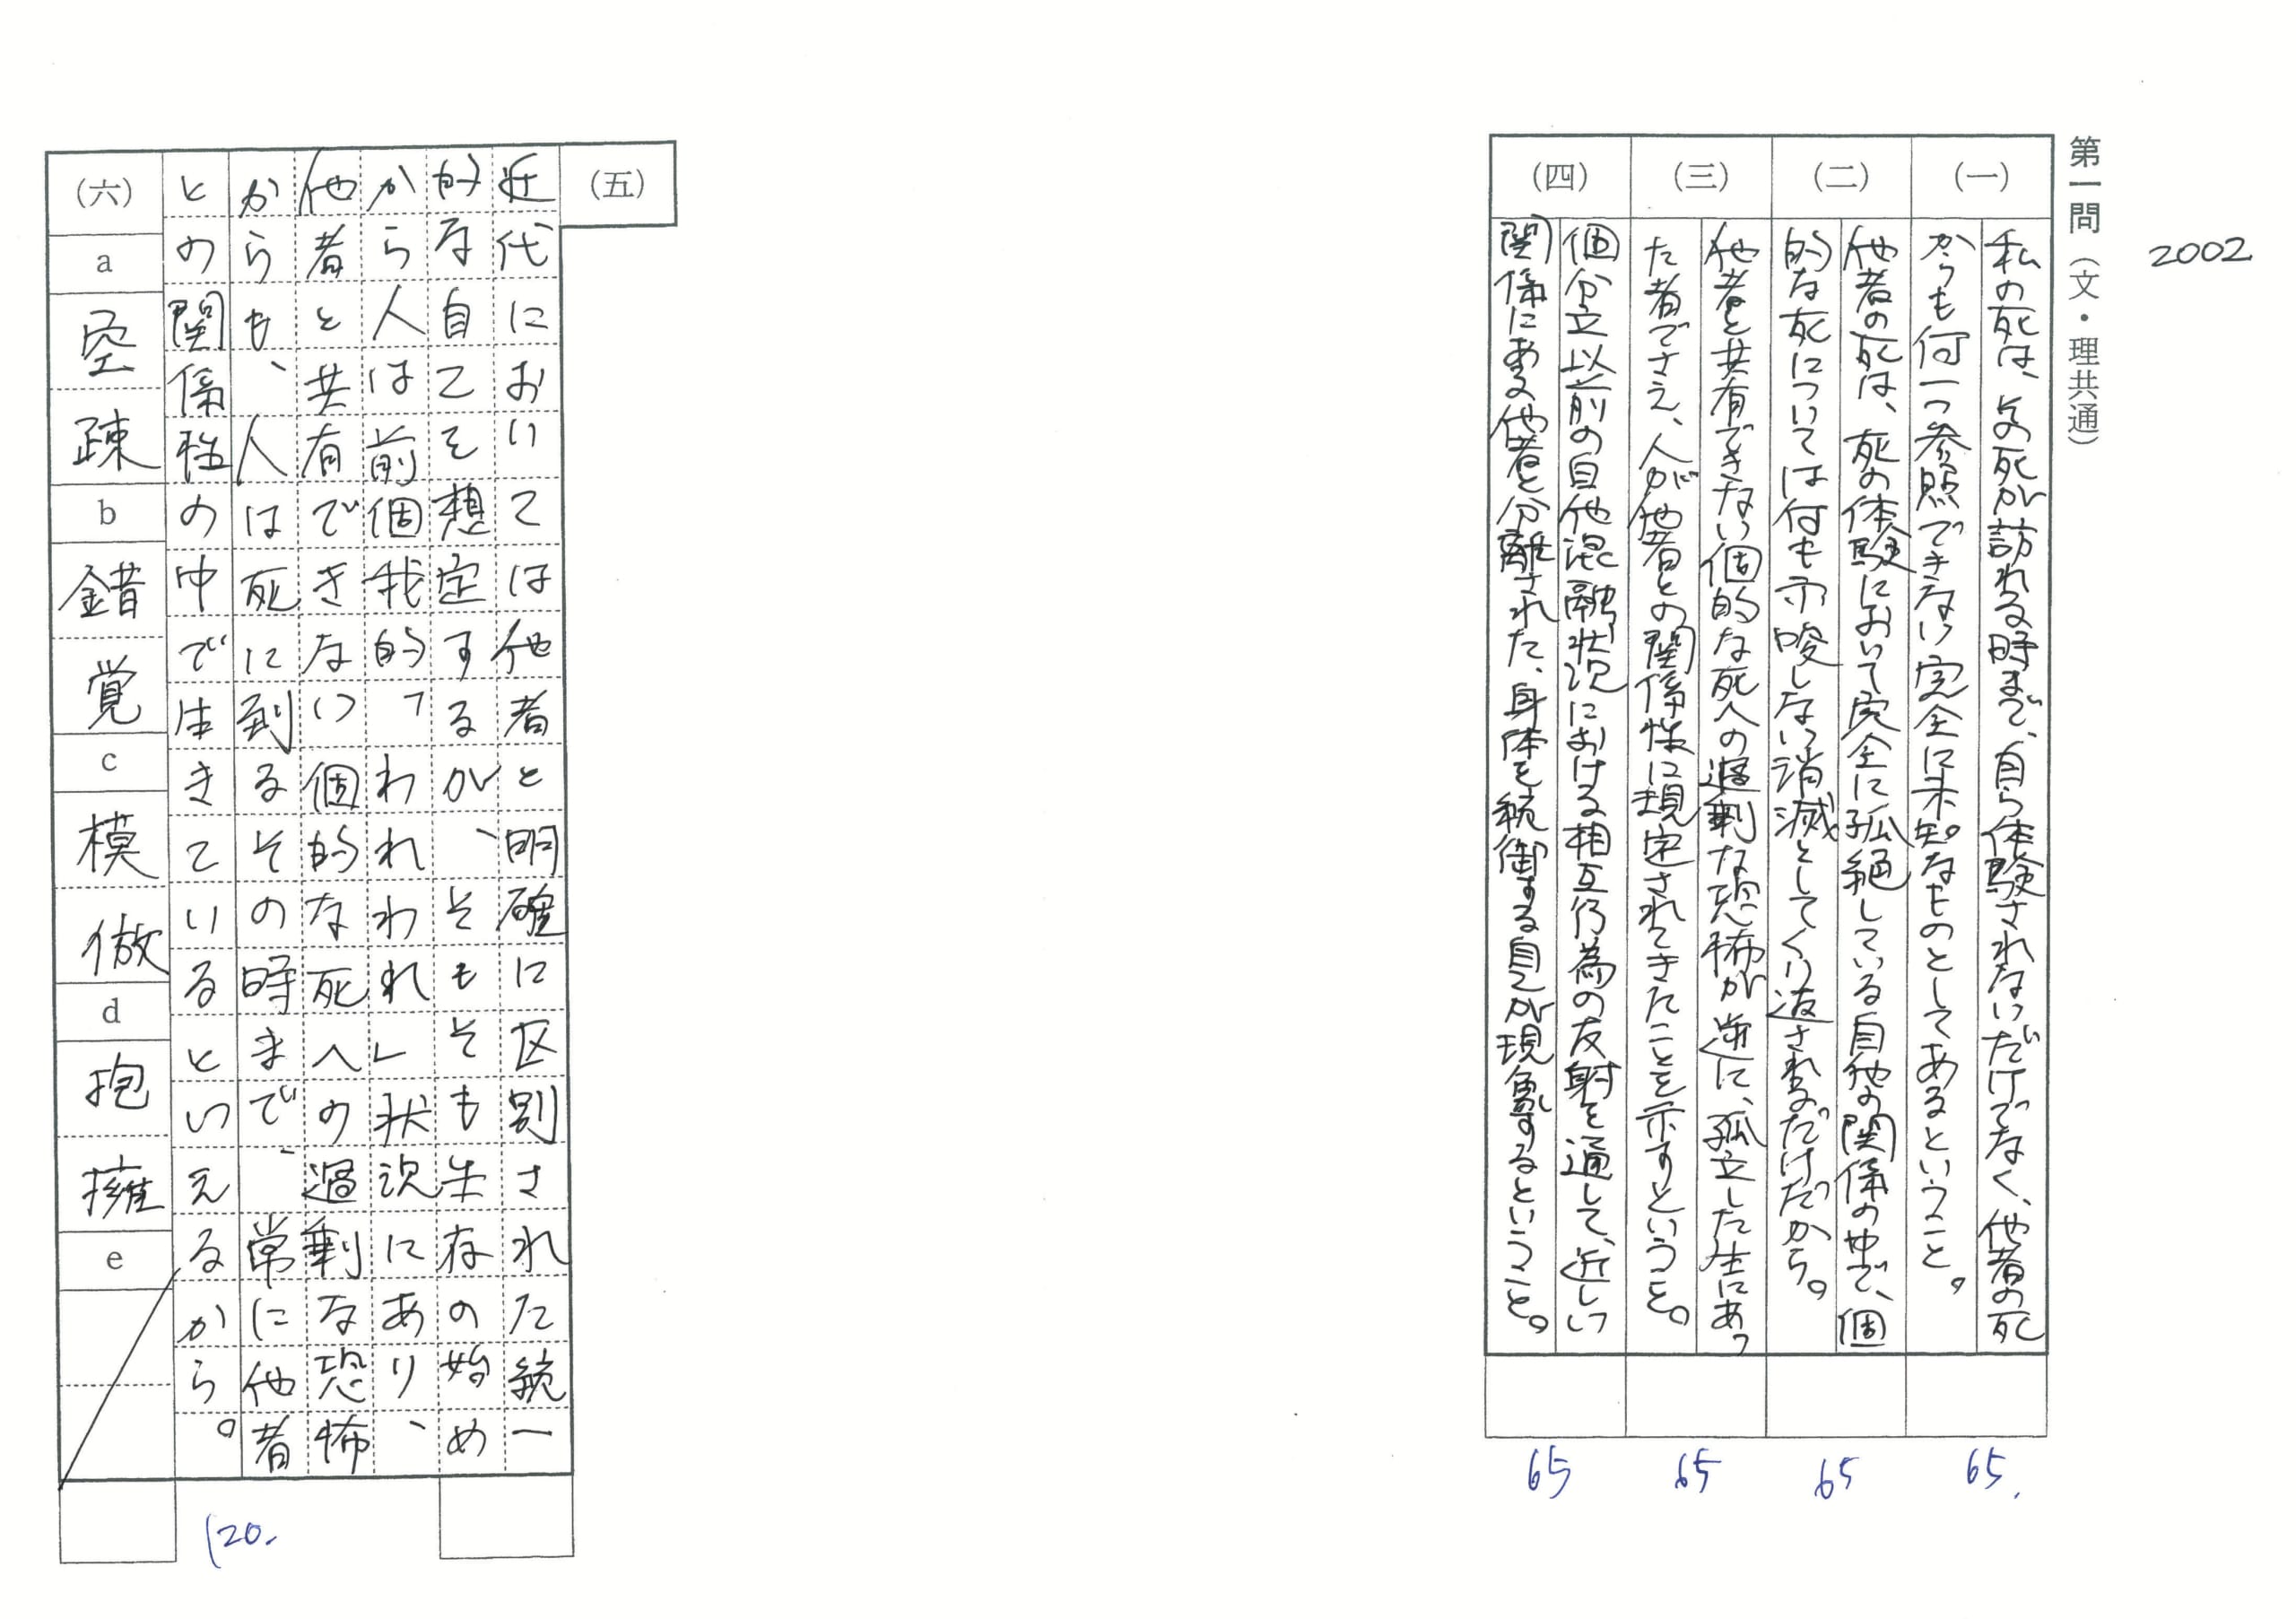 2002
第一問（文・理共通）
（一）
私の死は、その死が訪れる時まで、自ら体験されないだけでなく、他者の死
からも何一つ参照できない完全に未知なものとしてあるということ。
（二）
他者の死は、死の体験において完全に孤絶している自他の関係の中で、個
的な死については何も示唆しない消滅としてくり返されるだけだから。
（三）
他者と共有できない個的な死への過剰な恐怖が逆に、孤立した生にあっ
た者でさえ、人が他者との関係性に規定されてきたことを示すということ。
（四）
個分立以前の自他混融状況における相互行為の反射を通して、近しい
関係にある他者と分離された、身体を統御する自己が現象するということ。
65
65
65
65.
（五）
近代においては他者と明確に区別された統一
的な自己を想定するが、そもそも生存の始め
から人は前個我的「われわれ」状況にあり、
他者と共有できない個的な死への過剰な恐怖
からも、人は死に到るその時まで、常に他者
との関係性の中で生きているといえるから。
120.
（六）
a
空疎
b
錯覚
c
模倣
d
抱擁
e